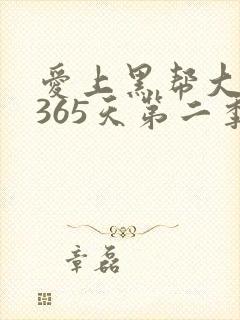 爱上黑帮大
365天第二季
章磊